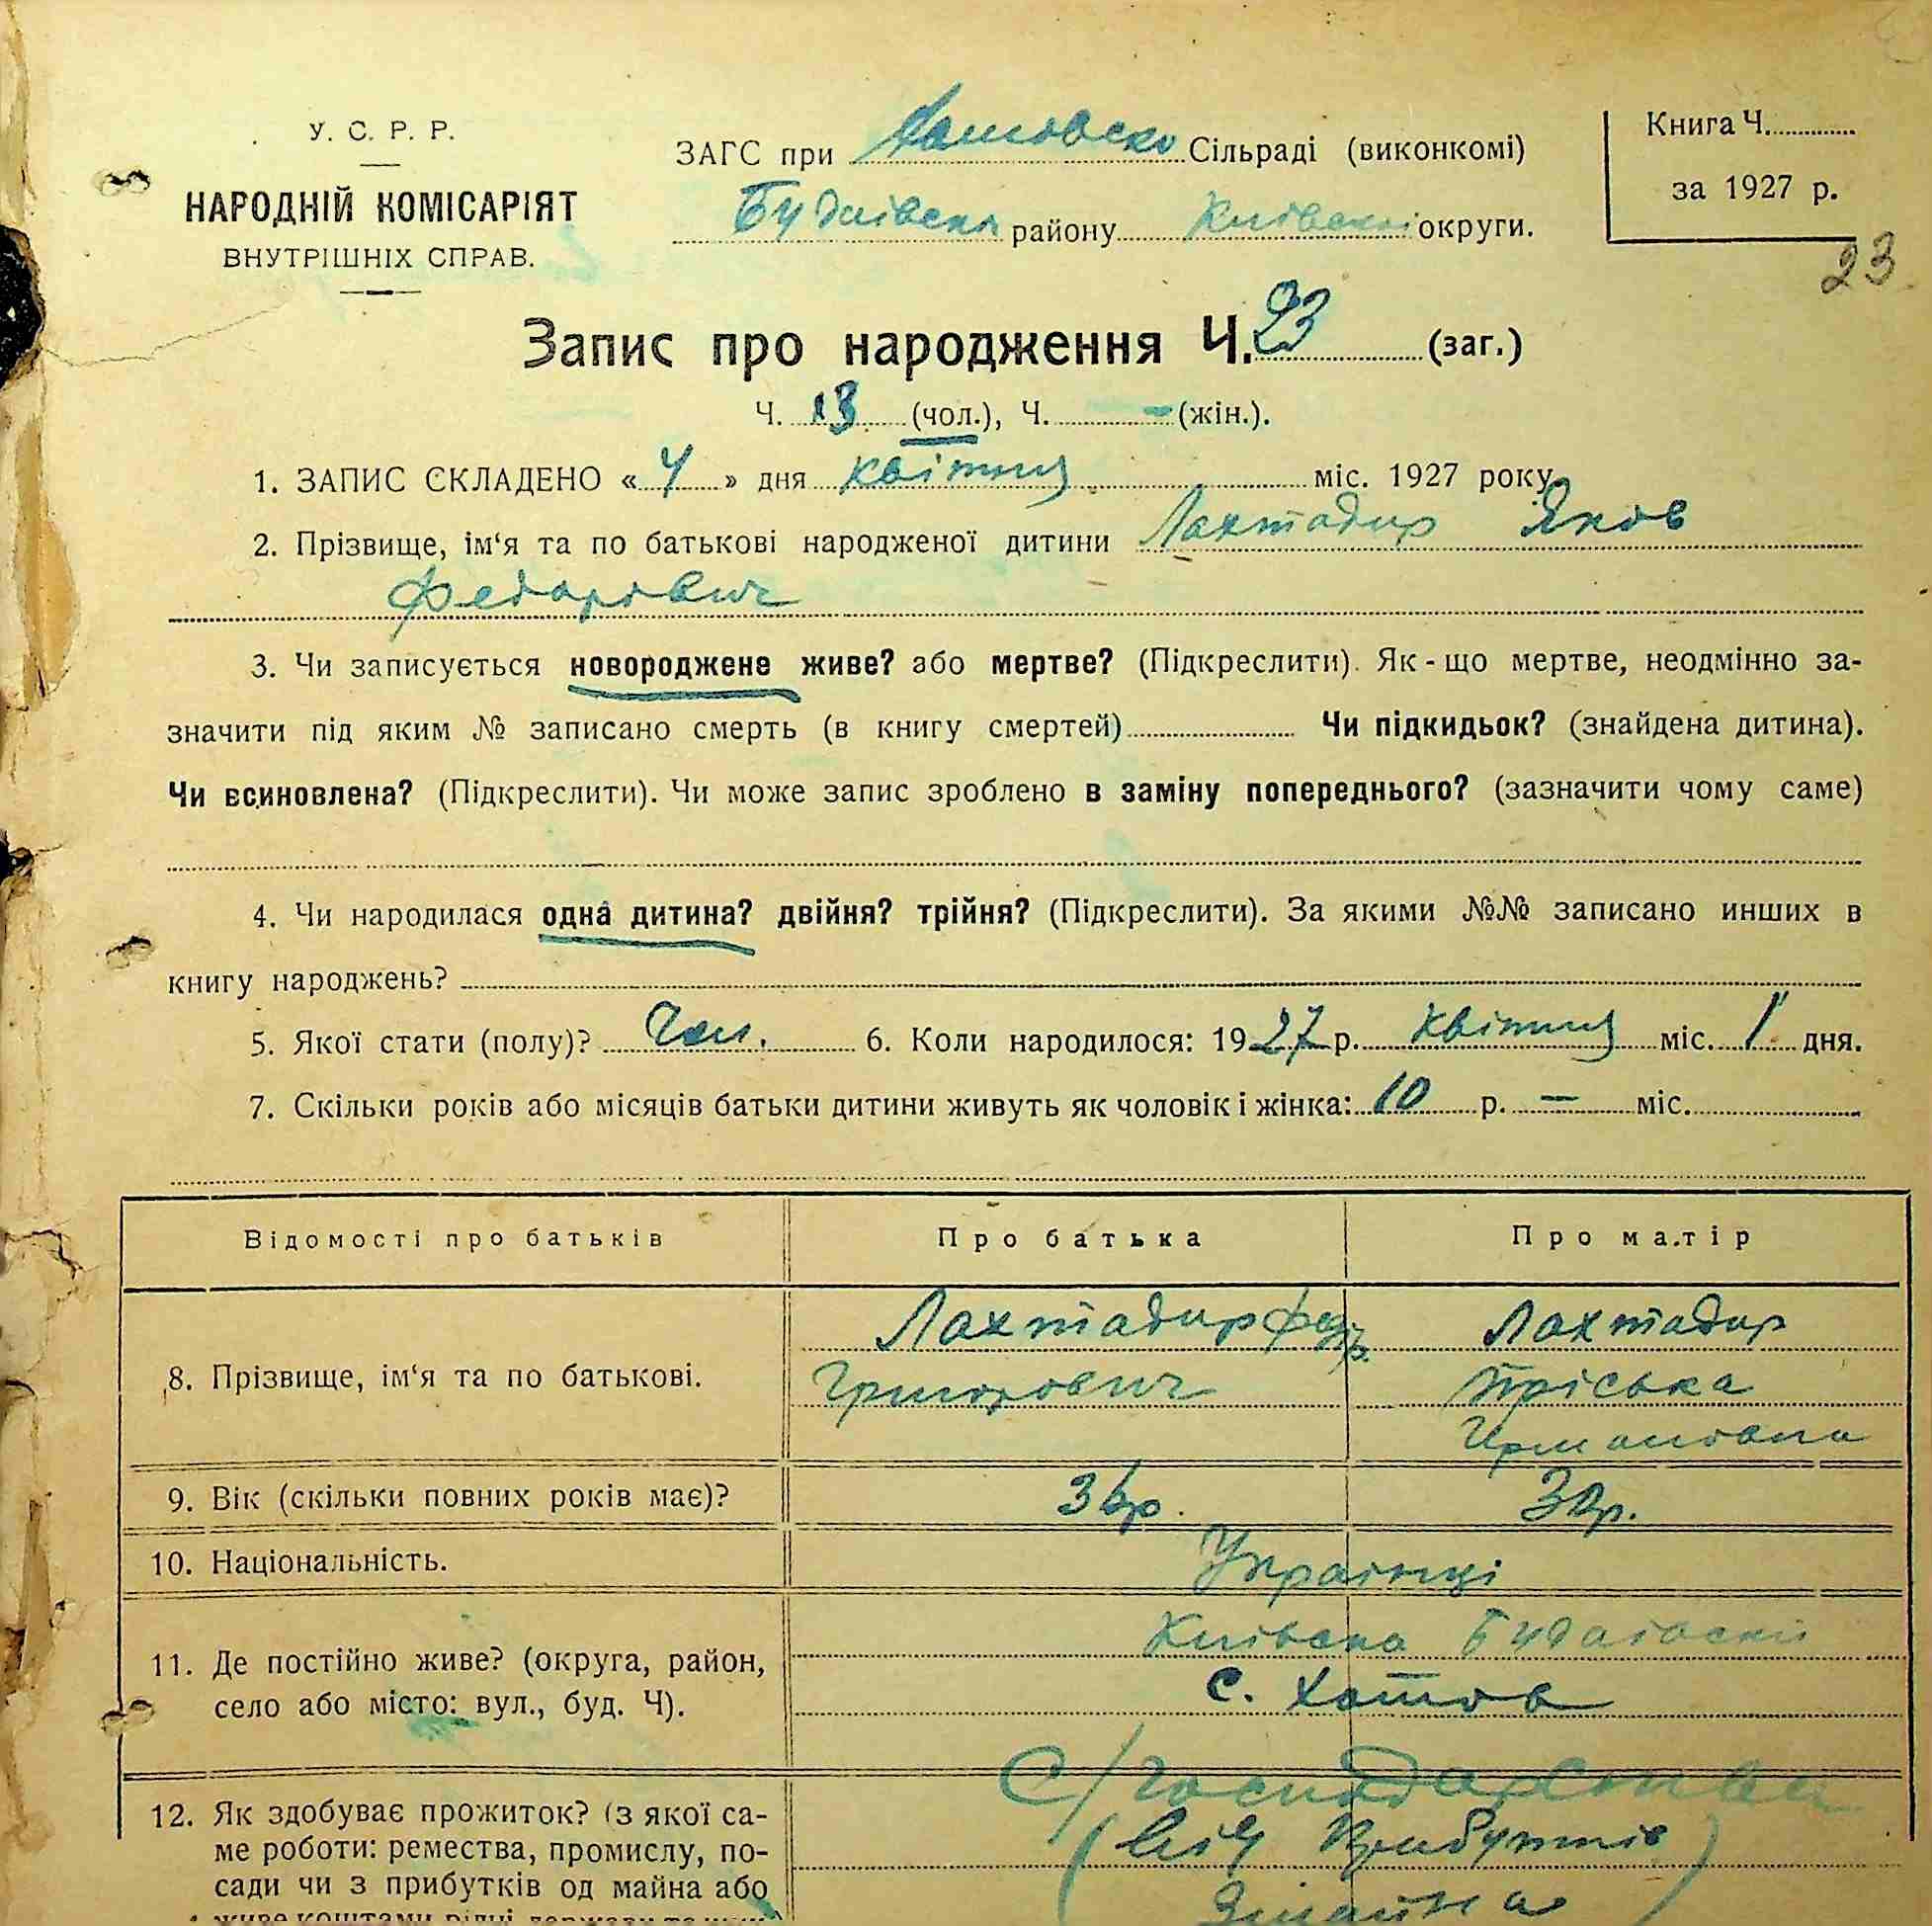 У. С. Р. Р.
НАРОДНІЙ КОМІСАРІЯТ
ВНУТРІШНІХ СПРАВ.
ЗАГС при Хотовско Сільраді (виконкомі)
Будаївськ району Київської округи.
Книга Ч.
за 1927 р.
23
Запис про народження Ч. 23 (заг.)
Ч. 13 (чол.), Ч. – (жін.).
1. ЗАПИС СКЛАДЕНО « 4 » дня квітня міс. 1927 року.
2. Прізвище, ім‘я та по батькові народженої дитини Лахтадир Яков
Федорович
3. Чи записується новороджене живе? або мертве? (Підкреслити). Як-що мертве, неодмінно за-
значити під яким № записано смерть (в книгу смертей) Чи підкидьок? (знайдена дитина).
Чи всиновлена? (Підкреслити). Чи може запис зроблено в заміну попереднього? (зазначити чому саме)
4. Чи народилася одна дитина? двійня? трійня? (Підкреслити). За якими №№ записано инших в
книгу народжень?
5. Якої стати (полу)? Чол. 6. Коли народилося: 1927 р. квітня міс. 1 дня.
7. Скільки років або місяців батьки дитини живуть як чоловік і жінка: 10 р. – міс.
Відомості про батьків Про батька Про матір
Лахтадир Федір Лахтадир
8. Прізвище, ім‘я та по батькові. Григорович Пріська
9. Вік (скільки повних років має)? 36р. 30р.
10. Національність. Українці
Київска
11. Де постійно живе? (округа, район,
село або місто: вул., буд. Ч). с. Хотов
С/господарства
12. Як здобуває прожиток? (з якої са-
ме роботи: ремества, промислу, по- (від прибутків
сади чи з прибутків од майна або
живе коштами рідні, держави та инш.)